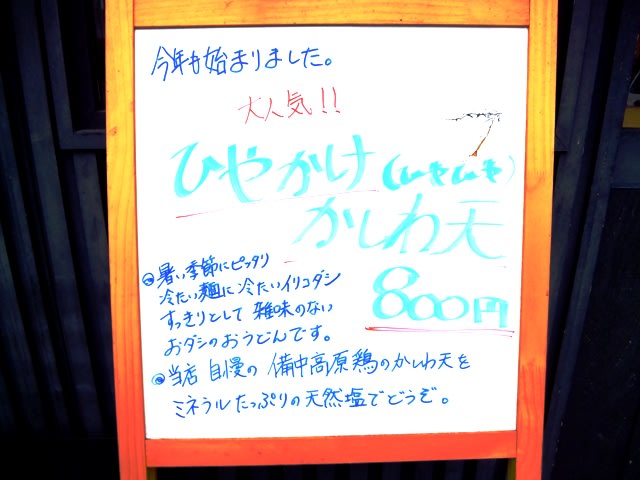 今年も始まりました。
大人気!!
ひやかけ(ひやひや)
かしわ天
800円
◎暑い季節にピッタリ
冷たい麺に冷たいイリコダシ
すっきりとして雑味のない
おダシのおうどんです。
◎当店 自慢の 備中高原鶏のかしわ天を
ミネラルたっぷりの天然塩でどうぞ。